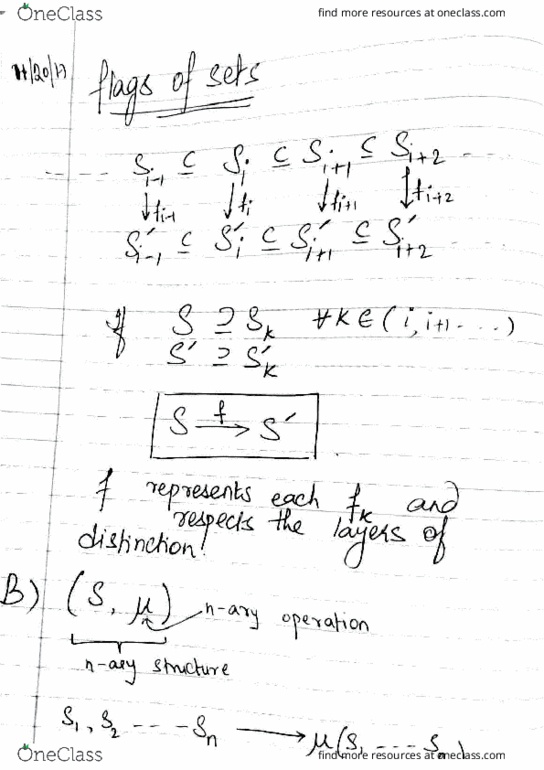 OneClass
find more resources at oneclass.com
flags of sets
----- S_{i-1} ⊆ S_i ⊆ S_{i+1} ⊆ S_{i+2} ---
↓f_{i-1} ↓f_i ↓f_{i+1} ↓f_{i+2}
S'_{i-1} ⊆ S'_i ⊆ S'_{i+1} ⊆ S'_{i+2}
If S ⊇ S_k ∀ k ∈ (i, i+1 ----)
S' ⊇ S'_k
S —f→ S'
f represents each f_k and
respects the layers of
distinction!
B) (S, μ) n-ary operation
n-ary structure
S_1, S_2 ---- S_n ⟶ μ(S_1 ---- S_n)
OneClass
find more resources at oneclass.com